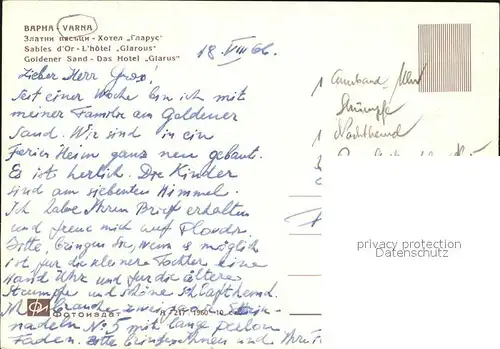 ВАРНА - VARNA
Златни пясъци - Хотел „Гларус"
Sables d'Or - L'hôtel „Glarous"
Goldener Sand - Das Hotel „Glarus"
18. VIII 66.
Lieber Herr
Seit einer Woche bin ich mit
meiner Familie am Goldener
Sand. Wir sind in ein
Ferien Heim ganz neu gebaut.
Es ist herlich. Die Kinder
sind am siebenten Himmel.
Ich habe Ihren Brief erhalten
und freue mich auf Plovdiv.
Bitte bringen Sie, wenn es möglich
ist für die kleinere Tochter eine
Hand Uhr und für die ältere
Strümpfe und schöne Schlafhemd.
Ich brauche
nadeln No 5 mit lange perlon
Faden. Bitte und Ihre
1 Armband Uhr
Strümpfe
1 Nachthemd
privacy protection
Datenschutz
Фотоиздат